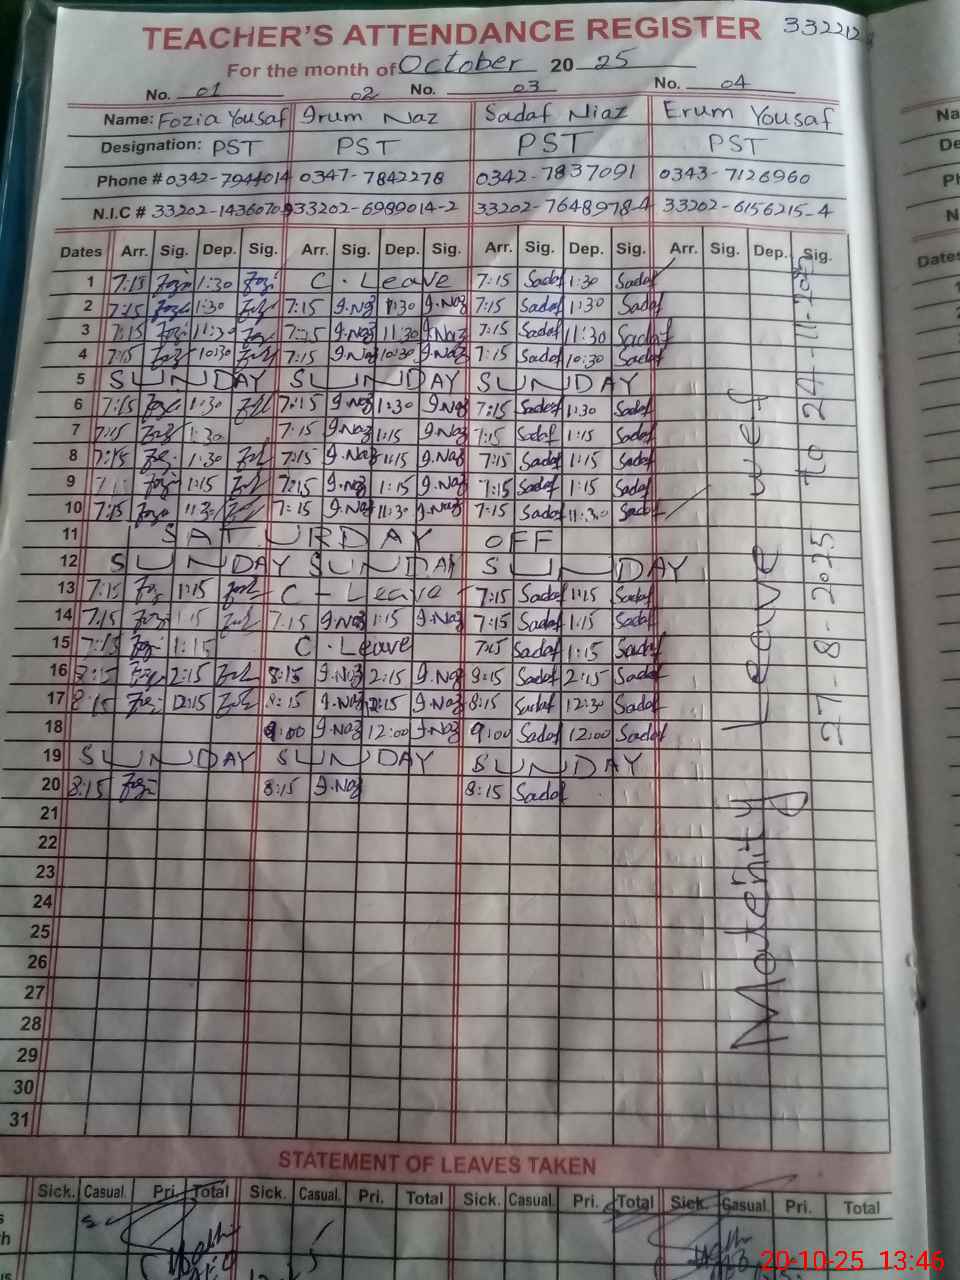 TEACHER'S ATTENDANCE REGISTER
For the month of October 2025
No. 01 02 No. 03 No. 04
Name: Fozia Yousaf Irum Naz Sadaf Niaz Erum Yousaf
Designation: PST PST PST PST
Phone # 0342-7944014 0347-7842278 0342-7837091 0343-7126960
N.I.C # 33202-1436070 33202-6989014-2 33202-7648978-4 33202-6156215-4
Dates Arr. Sig. Dep. Sig. Arr. Sig. Dep. Sig. Arr. Sig. Dep. Sig. Arr. Sig. Dep. Sig.
1 7:15 1:30 C. Leave 7:15 Sadaf 1:30 Sadaf
2 7:15 1:30 7:15 I.Naz 1:30 I.Naz 7:15 Sadaf 11:30 Sadaf
3 7:15 11:30 7:15 I.Naz 11:30 I.Naz 7:15 Sadaf 11:30 Sadaf
4 7:15 10:30 7:15 I.Naz 10:30 I.Naz 7:15 Sadaf 10:30 Sadaf
5 SUNDAY SUNDAY SUNDAY
6 7:15 1:30 7:15 I.Naz 1:30 I.Naz 7:15 Sadaf 1:30 Sadaf
7 7:15 1:30 7:15 I.Naz 1:15 I.Naz 7:15 Sadaf 1:15 Sadaf
8 7:15 1:30 7:15 I.Naz 1:15 I.Naz 7:15 Sadaf 1:15 Sadaf
9 1:15 7:15 I.Naz 1:15 I.Naz 7:15 Sadaf 1:15 Sadaf
10 7:15 11:30 7:15 I.Naz 11:30 I.Naz 7:15 Sadaf 11:30 Sadaf
11 SATURDAY OFF
12 SUNDAY SUNDAY SUNDAY
13 7:15 1:15 C - Leave 7:15 Sadaf 1:15 Sadaf
14 7:15 1:15 7:15 I.Naz 1:15 I.Naz 7:15 Sadaf 1:15 Sadaf
15 7:15 1:15 C. Leave 7:15 Sadaf 1:15 Sadaf
16 8:15 2:15 8:15 I.Naz 2:15 I.Naz 8:15 Sadaf 2:15 Sadaf
17 8:15 12:15 8:15 I.Naz 12:15 I.Naz 8:15 Sadaf 12:30 Sadaf
18 9:00 I.Naz 12:00 I.Naz 9:00 Sadaf 12:00 Sadaf
19 SUNDAY SUNDAY SUNDAY
20 8:15 8:15 I.Naz 8:15 Sadaf
21
22
23
24
25
26
27
28
29
30
31
Maternity Leave w.e.f
27-8-2025 to 24-11-2025
STATEMENT OF LEAVES TAKEN
Sick. Casual. Pri. Total Sick. Casual. Pri. Total Sick. Casual. Pri. Total Sick. Casual. Pri. Total
20-10-25 13:46